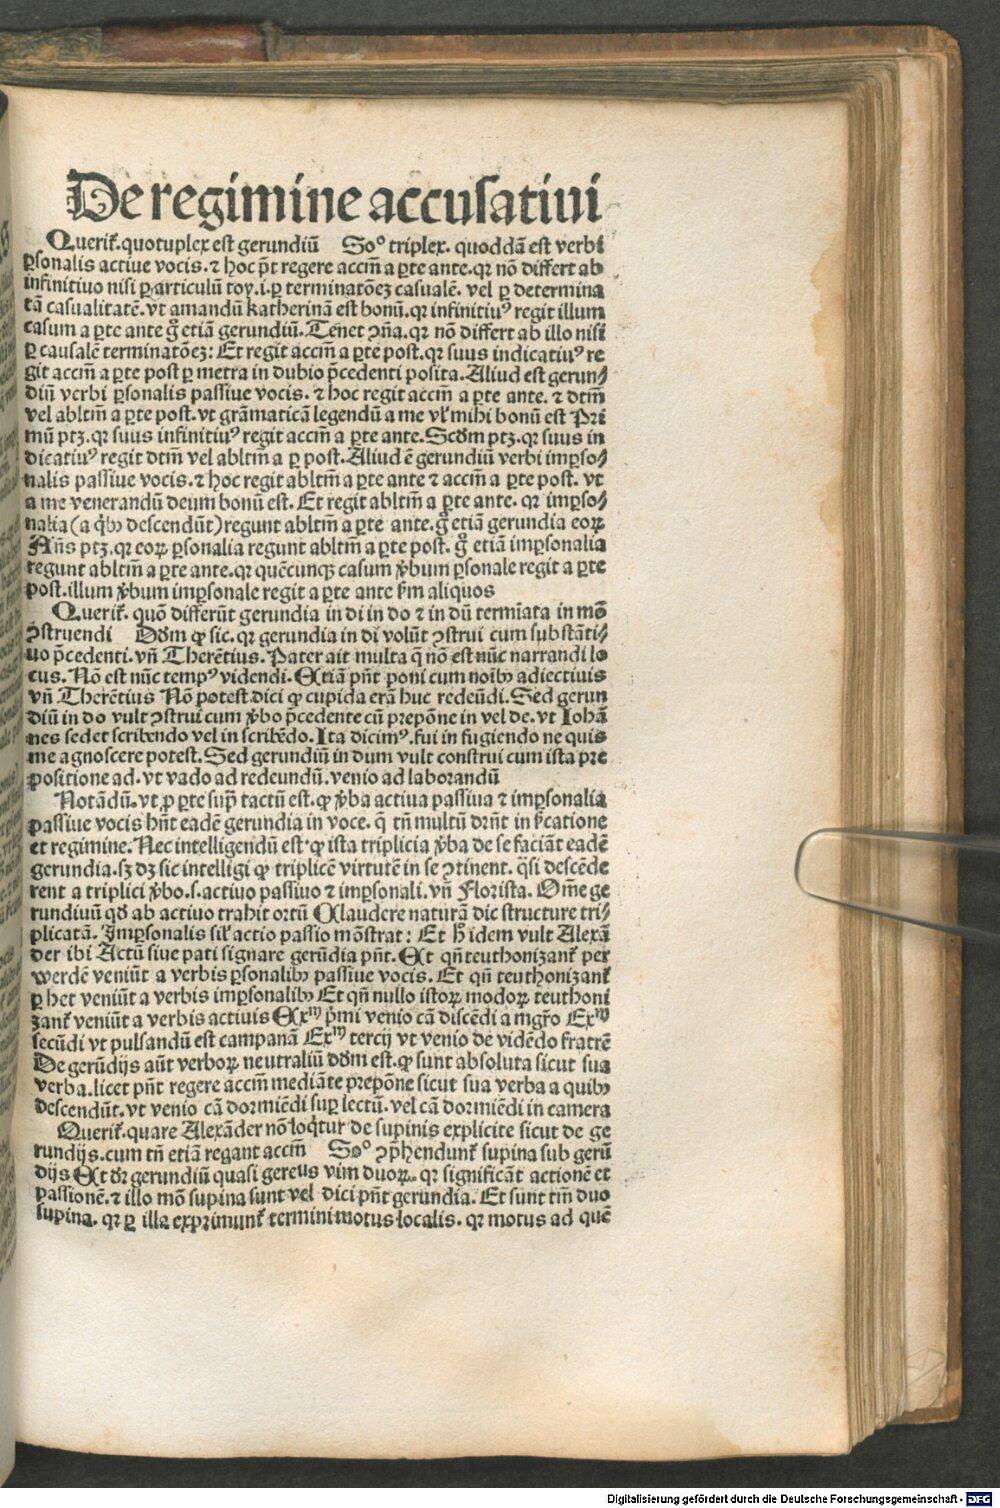 De regimine accusatiui
Querit̃. quotuplex est gerundiũ So° triplex. quoddã est verbi
ꝑsonalis actiue vocis. ⁊ hoc pñt regere accm̃ a ꝑte ante. qꝛ nõ differt ab
infinitiuo nisi ꝑ articulũ toy. i. ꝑ terminatõeꝫ casualẽ. vel ꝑ determina
tã casualitatẽ. vt amandũ katherinã est bonũ. qꝛ infinitiuꝰ regit illum
casum a ꝑte ante g̃ etiã gerundiũ. Tenet ↄ̃ña. qꝛ nõ differt ab illo nisi
ꝑ causalẽ terminatõeꝫ: Et regit accm̃ a ꝑte post. qꝛ suus indicatiuꝰ re
git accm̃ a ꝑte post ꝑ metra in dubio p̃cedenti posita. Aliud est gerun⸗
diũ verbi ꝑsonalis passiue vocis. ⁊ hoc regit accm̃ a ꝑte ante. ⁊ dtm̃
vel abltm̃ a ꝑte post. vt grãmaticã legendũ a me vl̕ mihi bonũ est Pri
mũ ptꝫ. qꝛ suus infinitiuꝰ regit accm̃ a ꝑte ante. Scd̕m ptꝫ. qꝛ suus in
dicatiuꝰ regit dtm̃ vel abltm̃ a ꝑ post. Aliud ẽ gerundiũ verbi imꝑso⸗
nalis passiue vocis. ⁊ hoc regit abltm̃ a ꝑte ante ⁊ accm̃ a ꝑte post. vt
a me venerandũ deum bonũ est. Et regit abltm̃ a ꝑte ante. qꝛ imꝑso⸗
nalia (a q̕bꝫ descendũt) regunt abltm̃ a ꝑte ante. g̃ etiã gerundia eoꝝ
Añs ptꝫ. qꝛ eoꝝ ꝑsonalia regunt abltm̃ a ꝑte post. g̃ etiã imꝑsonalia
regunt abltm̃ a ꝑte ante. qꝛ quẽcunqꝫ casum v̕bum ꝑsonale regit a ꝑte
post. illum v̕bum imꝑsonale regit a ꝑte ante ẜm aliquos
Querit̃. quõ differũt gerundia in di in do ⁊ in dũ termĩata in mõ
ↄstruendi Dd̕m ꝙ sic. qꝛ gerundia in di volũt ↄstrui cum substãti⸗
uo p̃cedenti. vñ Therẽtius. Pater ait multa q̃ nõ est nũc narrandi lo
cus. Nõ est nũc tempꝰ videndi. Etiã pñt poni cum noĩbꝫ adiectiuis
vñ Therẽtius Nõ potest dici ꝙ cupida erã huc redeũdi. Sed gerun
diũ in do vult ↄstrui cum v̕bo p̃cedente cũ prepõne in vel de. vt Iohã
nes sedet scribendo vel in scribẽdo. Ita dicimꝰ. fui in fugiendo ne quis
me agnoscere potest. Sed gerundiũ in dum vult construi cum ista pre
positione ad. vt vado ad redeundũ. venio ad laborandũ
Notãdũ. vt ꝓ ꝑte sup̃ tactũ est. ꝙ v̕ba actiua passiua ⁊ imꝑsonalia
passiue vocis hñt eadẽ gerundia in voce. q̃ tñ multũ dr̃nt in p̕catione
et regimine. Nec intelligendũ est. ꝙ ista triplicia v̕ba de se faciãt eadẽ
gerundia. sꝫ dꝫ sic intelligi ꝙ triplicẽ virtutẽ in se ↄtinent. q̃si descẽde
rent a triplici v̕bo. s. actiuo passiuo ⁊ imꝑsonali. vñ Florista. Om̃e ge
rundiuũ qd̕ ab actiuo trahit ortũ Claudere naturã dic structure tri⸗
plicatã. Imꝑsonalis sil̕ actio passio mõstrat: Et h̕ idem vult Alexã
der ibi Actũ siue pati signare gerũdia pñt. Et qñ teuthonizant̃ per
werdẽ veniũt a verbis ꝑsonalibꝫ passiue vocis. Et qñ teuthonizant̃
ꝑ het veniũt a verbis imꝑsonalibꝫ Et qñ nullo istoꝝ modoꝝ teuthoni
zant̃ veniũt a verbis actiuis Exᵐ p̕mi venio cã discẽdi a mgr̃o Exᵐ
secũdi vt pulsandũ est campanã Exᵐ tercij vt venio de vidẽdo fratrẽ
De gerũdijs aũt verboꝝ neutraliũ dd̕m est. ꝙ sunt absoluta sicut sua
verba. licet pñt regere accm̃ mediãte prepõne sicut sua verba a quibꝫ
descendũt. vt venio cã dormiẽdi suꝑ lectũ. vel cã dormiẽdi in camera
Querit̃. quare Alexãder nõ loq̕tur de supinis explicite sicut de ge
rundijs. cum tñ etiã regant accm̃ So° ↄp̃hendunt̃ supina sub gerũ
dijs Et dr̃ gerundiũ quasi gerens vim duoꝝ. qꝛ significãt actionẽ et
passionẽ. ⁊ illo mõ supina sunt vel dici pñt gerundia. Et sunt tm̃ duo
supina. qꝛ ꝑ illa exprimunt̃ termini motus localis. qꝛ motus ad quẽ
Digitalisierung gefördert durch die Deutsche Forschungsgemeinschaft - DFG